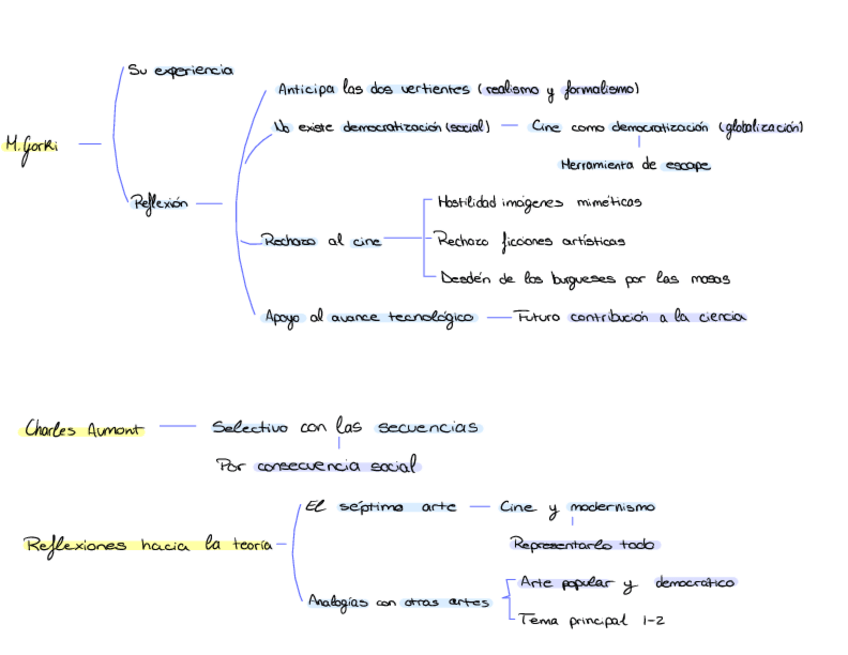 Su experiencia
Anticipa las dos vertientes (realismo y formalismo)
No existe democratización (social) — Cine como democratización (globalización)
M. Gorki
Herramienta de escape
Reflexión
Hostilidad imágenes miméticas
Rechazo al cine
Rechazo ficciones artísticas
Desdén de los burgueses por las masas
Apoyo al avance tecnológico — Futuro contribución a la ciencia
Charles Aumont — Selectivo con las secuencias
Por consecuencia social
El séptimo arte — Cine y modernismo
Reflexiones hacia la teoría
Representarlo todo
Analogías con otras artes
Arte popular y democrático
Tema principal 1-2